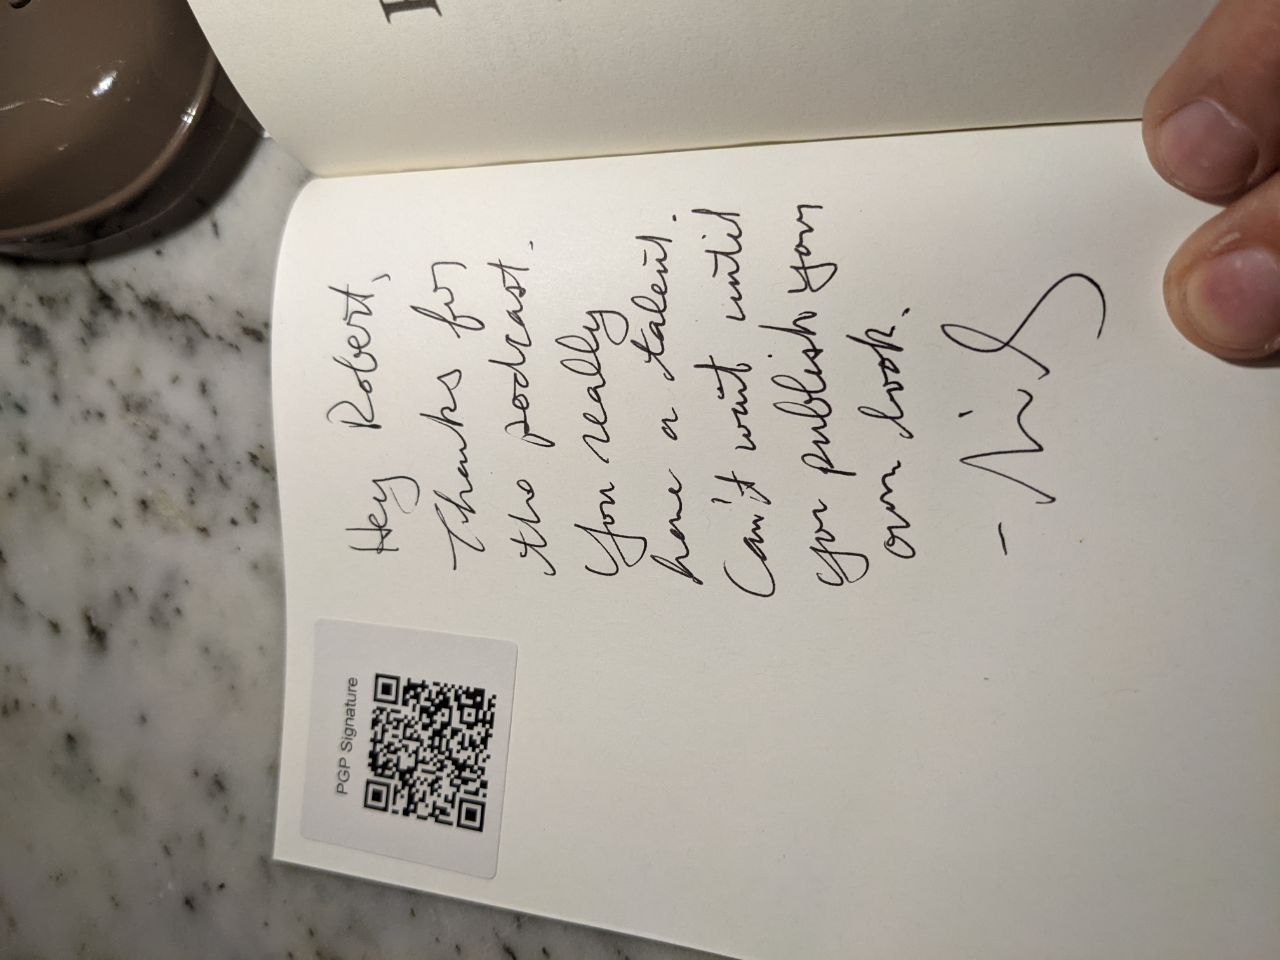 Hey Robert,
Thanks for
the podcast.
You really
have a talent.
Can't wait until
you publish your
own book.
PGP Signature